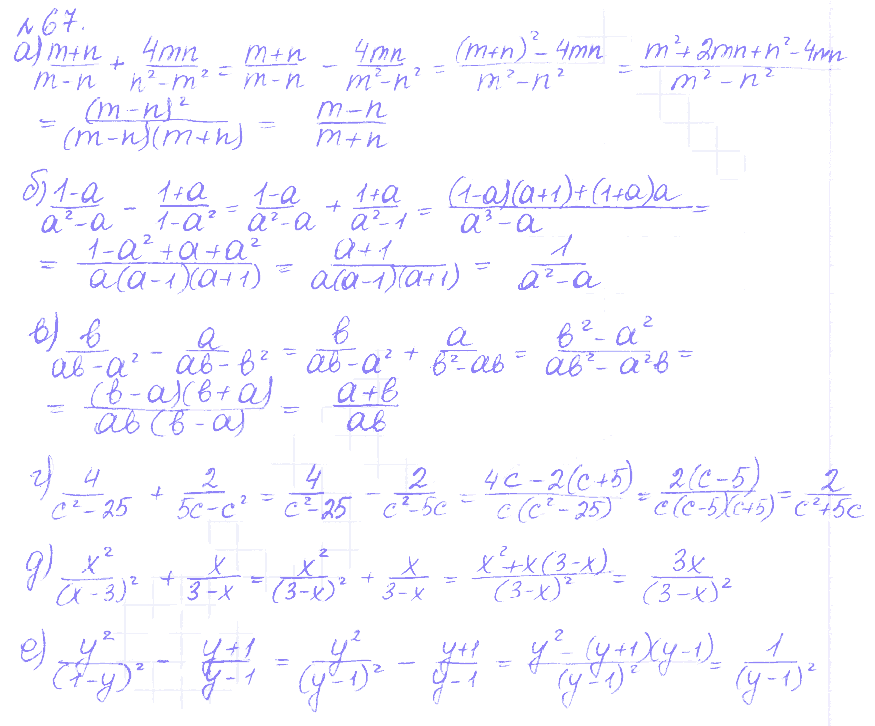 №67.
а) (m+n)/(m-n) + 4mn/(n²-m²) = (m+n)/(m-n) - 4mn/(m²-n²) = ((m+n)²-4mn)/(m²-n²) = (m²+2mn+n²-4mn)/(m²-n²)
= (m-n)²/((m-n)(m+n)) = (m-n)/(m+n)
б) (1-a)/(a²-a) - (1+a)/(1-a²) = (1-a)/(a²-a) + (1+a)/(a²-1) = ((1-a)(a+1)+(1+a)a)/(a³-a) =
= (1-a²+a+a²)/(a(a-1)(a+1)) = (a+1)/(a(a-1)(a+1)) = 1/(a²-a)
в) b/(ab-a²) - a/(ab-b²) = b/(ab-a²) + a/(b²-ab) = (b²-a²)/(ab²-a²b) =
= (b-a)(b+a)/(ab(b-a)) = (a+b)/(ab)
г) 4/(c²-25) + 2/(5c-c²) = 4/(c²-25) - 2/(c²-5c) = (4c-2(c+5))/(c(c²-25)) = 2(c-5)/(c(c-5)(c+5)) = 2/(c²+5c)
д) x²/(x-3)² + x/(3-x) = x²/(3-x)² + x/(3-x) = (x²+x(3-x))/(3-x)² = 3x/(3-x)²
е) y²/(1-y)² - (y+1)/(y-1) = y²/(y-1)² - (y+1)/(y-1) = (y²-(y+1)(y-1))/(y-1)² = 1/(y-1)²